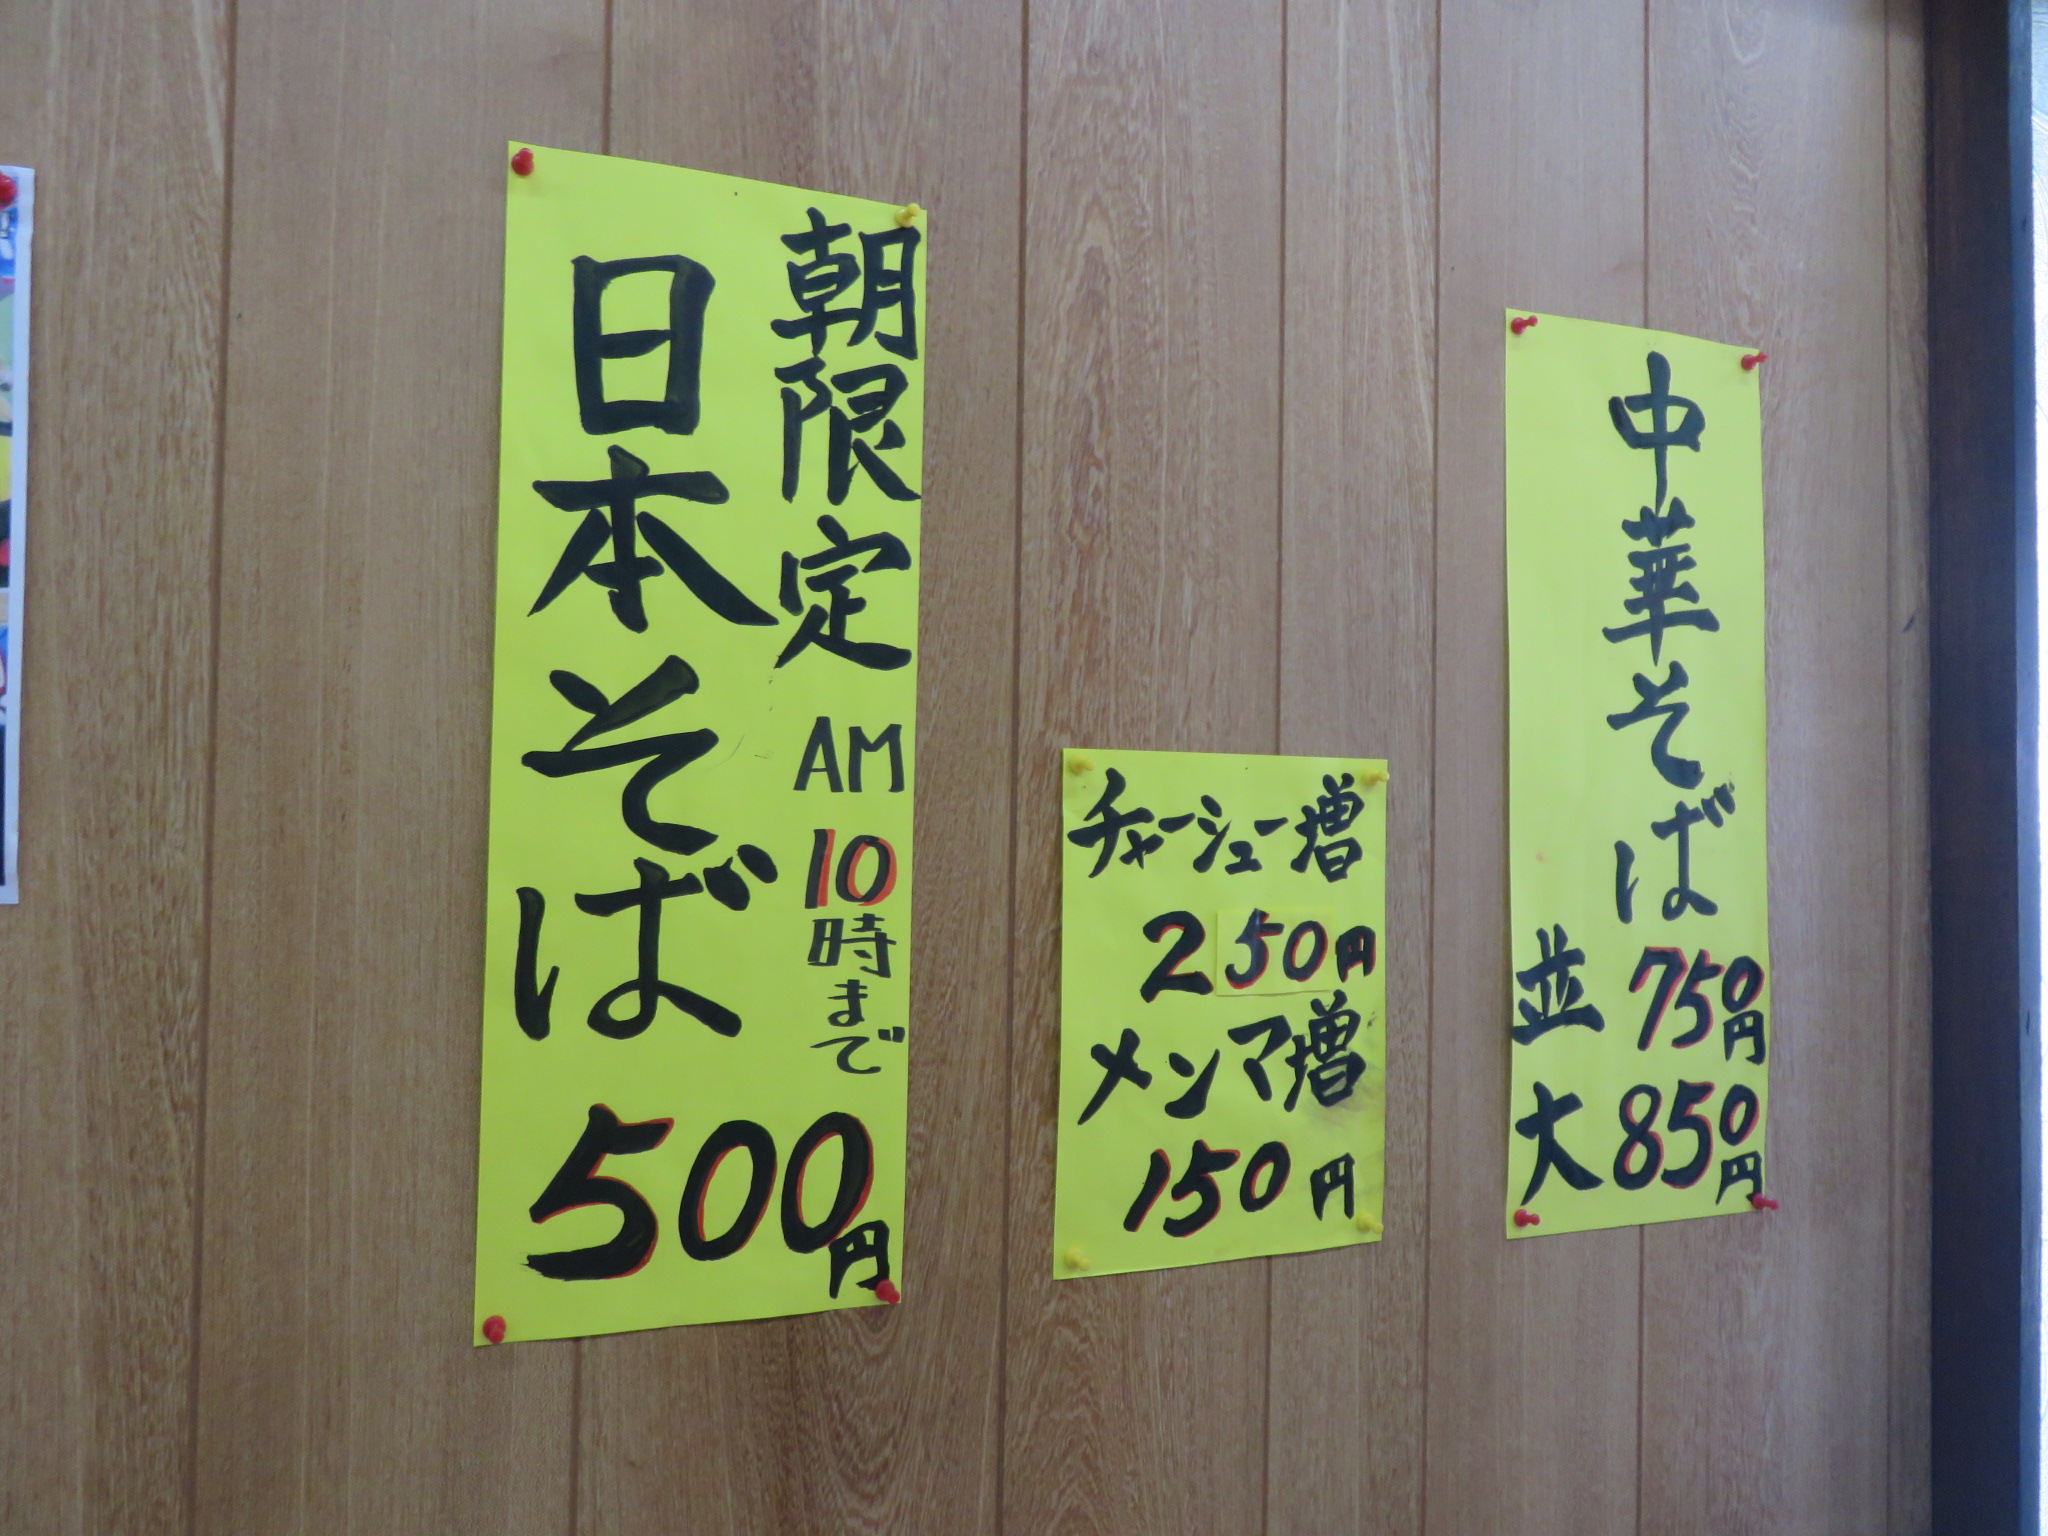 朝限定 AM 10時まで
日本そば
500円
チャーシュー増
250円
メンマ増
150円
中華そば
並 750円
大 850円